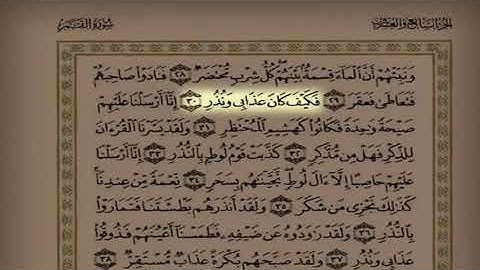 الجزء السابع والعشرون سورة القمر
وَنَبِّئْهُمْ أَنَّ الْمَاءَ قِسْمَةٌ بَيْنَهُمْ كُلُّ شِرْبٍ مُّحْتَضَرٌ ٢٨ فَنَادَوْا صَاحِبَهُمْ
فَتَعَاطَىٰ فَعَقَرَ ٢٩ فَكَيْفَ كَانَ عَذَابِي وَنُذُرِ ٣٠ إِنَّا أَرْسَلْنَا عَلَيْهِمْ
صَيْحَةً وَاحِدَةً فَكَانُوا كَهَشِيمِ الْمُحْتَظِرِ ٣١ وَلَقَدْ يَسَّرْنَا الْقُرْءَانَ
لِلذِّكْرِ فَهَلْ مِن مُّدَّكِرٍ ٣٢ كَذَّبَتْ قَوْمُ لُوطٍ بِالنُّذُرِ ٣٣ إِنَّا أَرْسَلْنَا
عَلَيْهِمْ حَاصِبًا إِلَّا ءَالَ لُوطٍ نَّجَّيْنَاهُم بِسَحَرٍ ٣٤ نِّعْمَةً مِّنْ عِندِنَا
كَذَٰلِكَ نَجْزِي مَن شَكَرَ ٣٥ وَلَقَدْ أَنذَرَهُم بَطْشَتَنَا فَتَمَارَوْا
بِالنُّذُرِ ٣٦ وَلَقَدْ رَاوَدُوهُ عَن ضَيْفِهِ فَطَمَسْنَا أَعْيُنَهُمْ فَذُوقُوا
عَذَابِي وَنُذُرِ ٣٧ وَلَقَدْ صَبَّحَهُم بُكْرَةً عَذَابٌ مُّسْتَقِرٌّ ٣٨